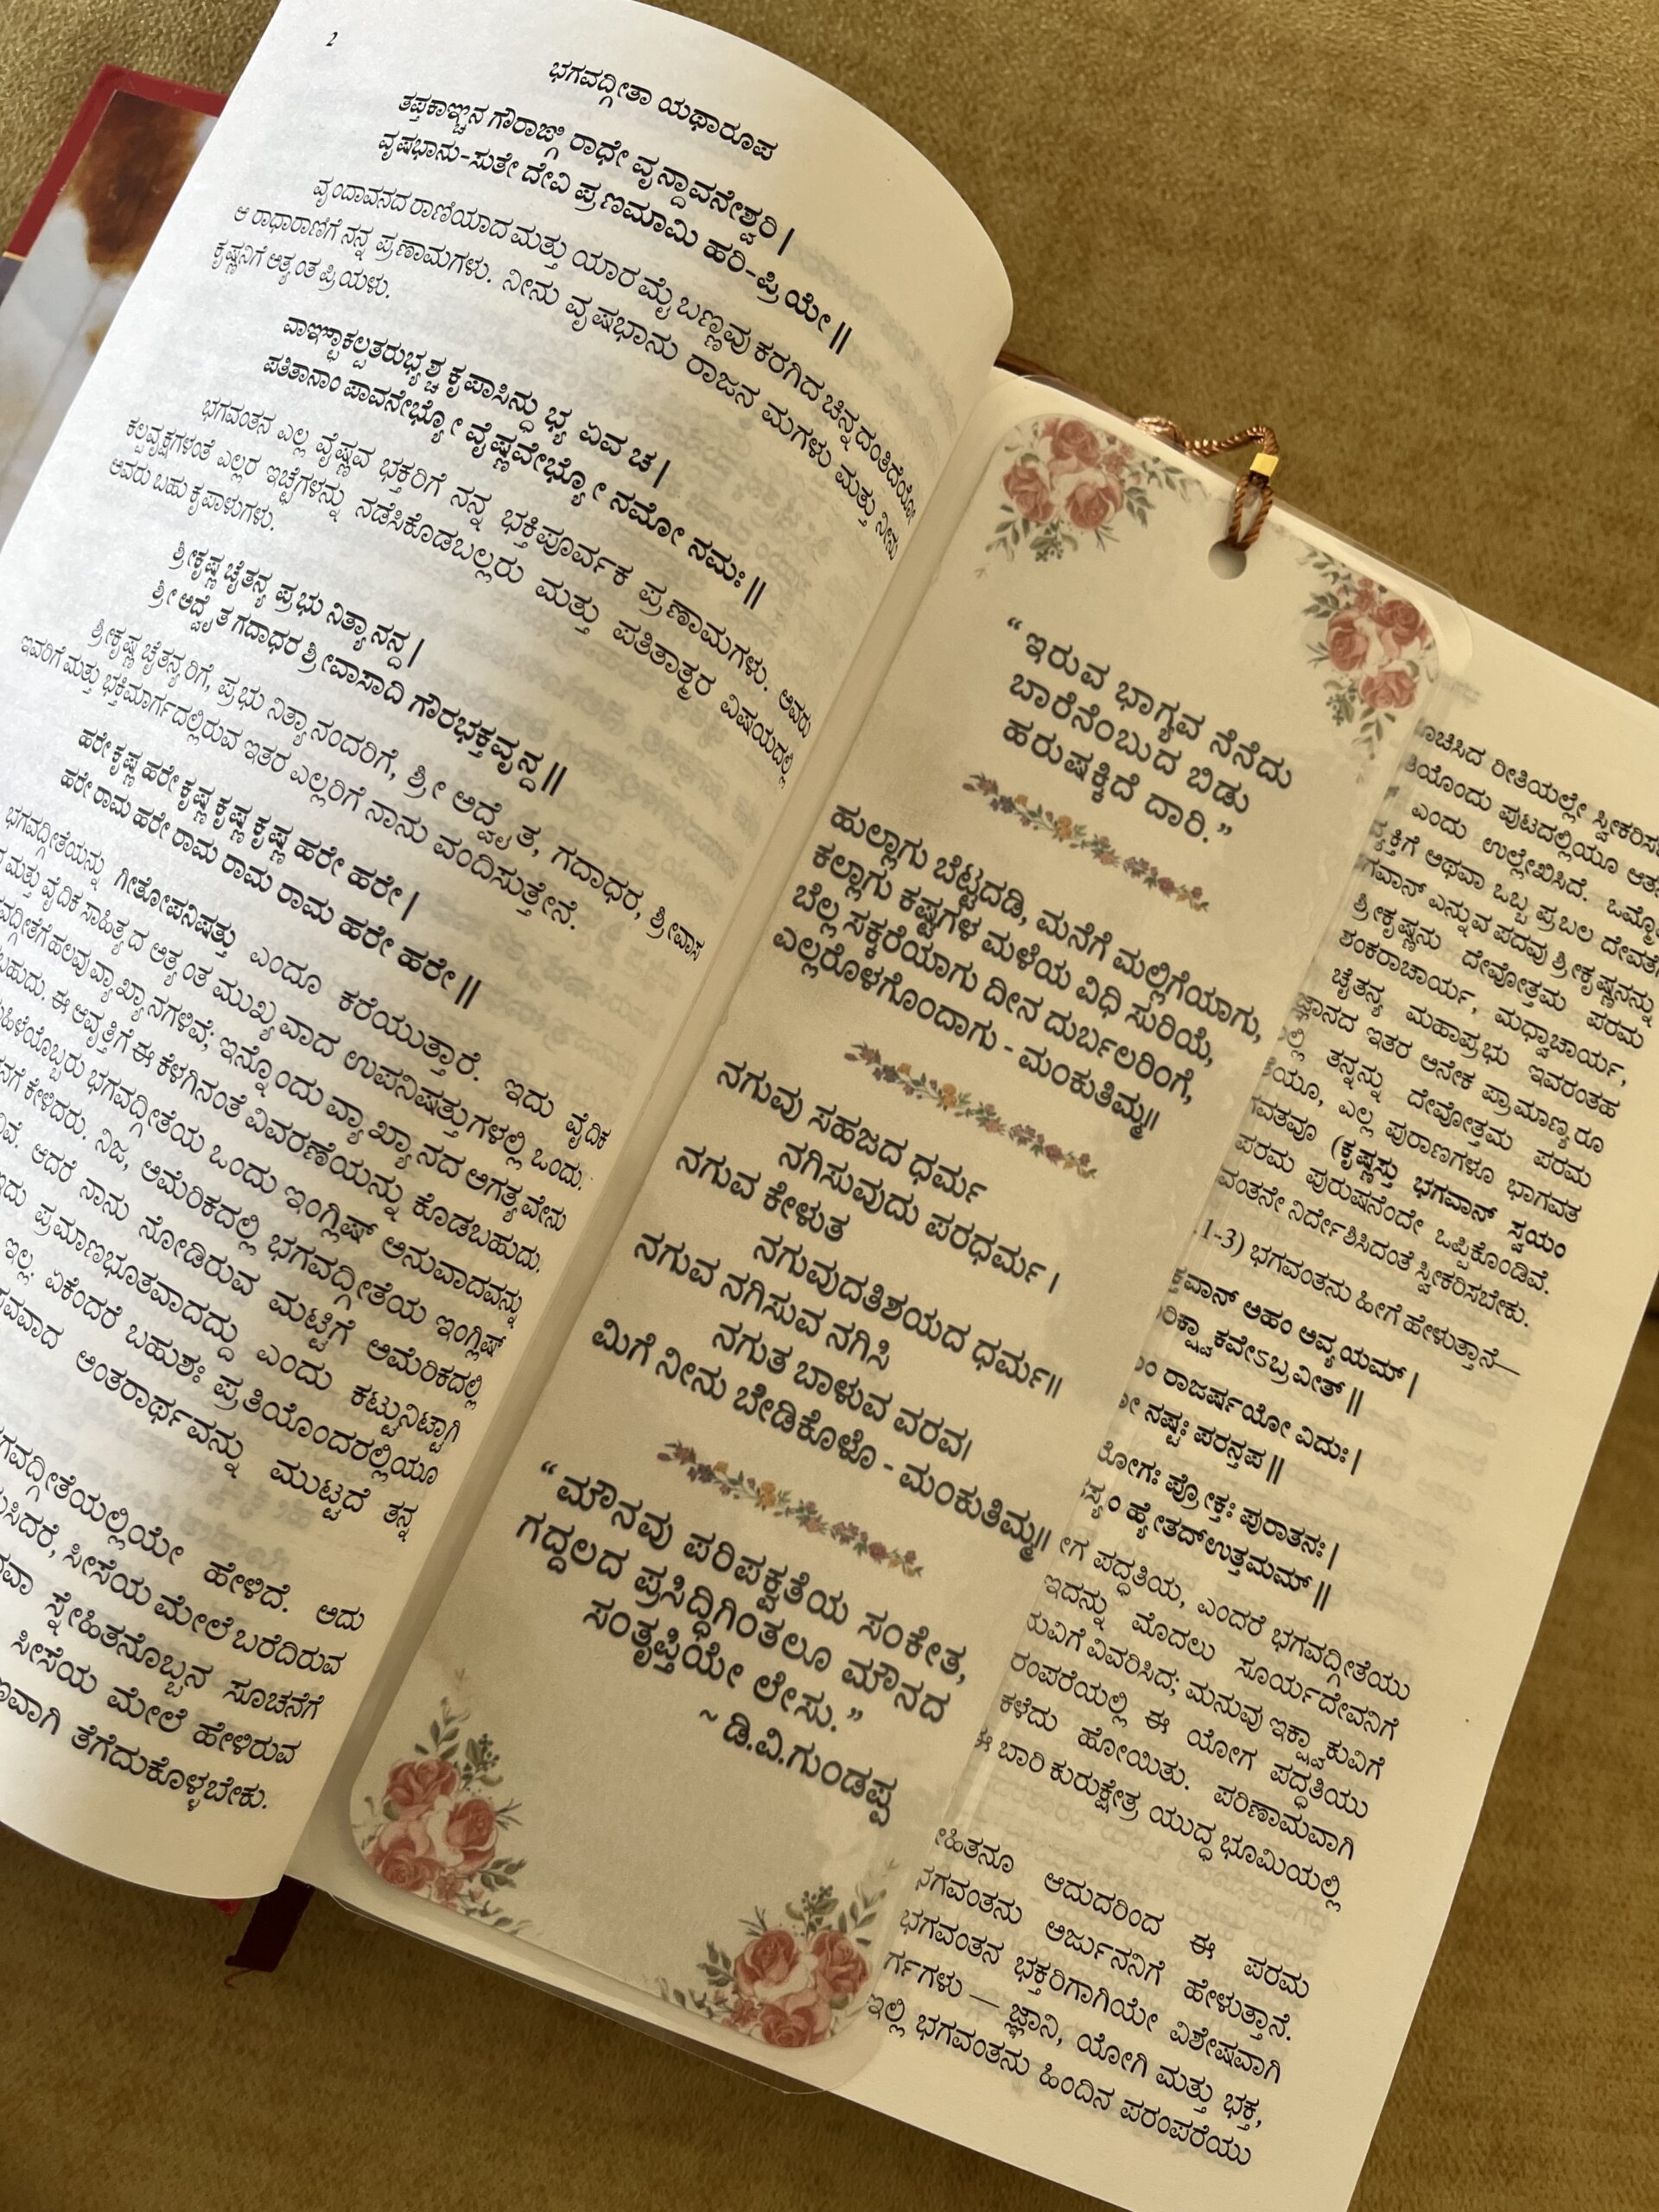 2
ಭಗವದ್ಗೀತಾ ಯಥಾರೂಪ
ತಪ್ತಕಾಞ್ಚನ ಗೌರಾಙ್ಗಿ ರಾಧೇ ವೃನ್ದಾವನೇಶ್ವರಿ |
ವೃಷಭಾನು-ಸುತೇ ದೇವಿ ಪ್ರಣಮಾಮಿ ಹರಿ-ಪ್ರಿಯೇ ||
ವೃಂದಾವನದ ರಾಣಿಯಾದ ಮತ್ತು ಯಾರ ಮೈ ಬಣ್ಣವು ಕರಗಿದ ಚಿನ್ನದಂತಿದೆಯೋ
ಆ ರಾಧಾರಾಣಿಗೆ ನನ್ನ ಪ್ರಣಾಮಗಳು. ನೀನು ವೃಷಭಾನು ರಾಜನ ಮಗಳು ಮತ್ತು ನೀನು
ಕೃಷ್ಣನಿಗೆ ಅತ್ಯಂತ ಪ್ರಿಯಳು.
ವಾಞ್ಛಾಕಲ್ಪತರುಭ್ಯಶ್ಚ ಕೃಪಾಸಿನ್ಧುಭ್ಯ ಏವ ಚ |
ಪತಿತಾನಾಂ ಪಾವನೇಭ್ಯೋ ವೈಷ್ಣವೇಭ್ಯೋ ನಮೋ ನಮಃ ||
ಭಗವಂತನ ಎಲ್ಲ ವೈಷ್ಣವ ಭಕ್ತರಿಗೆ ನನ್ನ ಭಕ್ತಿಪೂರ್ವಕ ಪ್ರಣಾಮಗಳು. ಅವರು
ಕಲ್ಪವೃಕ್ಷಗಳಂತೆ ಎಲ್ಲರ ಇಚ್ಛೆಗಳನ್ನು ನಡೆಸಿಕೊಡಬಲ್ಲರು ಮತ್ತು ಪತಿತಾತ್ಮರ ವಿಷಯದಲ್ಲಿ
ಅವರು ಬಹು ಕೃಪಾಳುಗಳು.
ಶ್ರೀಕೃಷ್ಣ ಚೈತನ್ಯ ಪ್ರಭು ನಿತ್ಯಾನನ್ದ |
ಶ್ರೀ ಅದ್ವೈತ ಗದಾಧರ ಶ್ರೀವಾಸಾದಿ ಗೌರಭಕ್ತವೃನ್ದ ||
ಶ್ರೀಕೃಷ್ಣ ಚೈತನ್ಯರಿಗೆ, ಪ್ರಭು ನಿತ್ಯಾನಂದರಿಗೆ, ಶ್ರೀ ಅದ್ವೈತ, ಗದಾಧರ, ಶ್ರೀವಾಸ
ಇವರಿಗೆ ಮತ್ತು ಭಕ್ತಿಮಾರ್ಗದಲ್ಲಿರುವ ಇತರ ಎಲ್ಲರಿಗೆ ನಾನು ವಂದಿಸುತ್ತೇನೆ.
ಹರೇ ಕೃಷ್ಣ ಹರೇ ಕೃಷ್ಣ ಕೃಷ್ಣ ಕೃಷ್ಣ ಹರೇ ಹರೇ |
ಹರೇ ರಾಮ ಹರೇ ರಾಮ ರಾಮ ರಾಮ ಹರೇ ಹರೇ ||
ಭಗವದ್ಗೀತೆಯನ್ನು ಗೀತೋಪನಿಷತ್ತು ಎಂದೂ ಕರೆಯುತ್ತಾರೆ. ಇದು ವೈದಿಕ
ಮತ್ತು ವೈದಿಕ ಸಾಹಿತ್ಯದ ಅತ್ಯಂತ ಮುಖ್ಯವಾದ ಉಪನಿಷತ್ತುಗಳಲ್ಲಿ ಒಂದು.
ಹಲವು ವ್ಯಾಖ್ಯಾನಗಳಿವೆ; ಇನ್ನೊಂದು ವ್ಯಾಖ್ಯಾನದ ಅಗತ್ಯವೇನು
ಈ ಆವೃತ್ತಿಗೆ ಈ ಕೆಳಗಿನಂತೆ ವಿವರಣೆಯನ್ನು ಕೊಡಬಹುದು.
ಭಗವದ್ಗೀತೆಯ ಒಂದು ಇಂಗ್ಲಿಷ್ ಅನುವಾದವನ್ನು
ಕೇಳಿದರು. ನಿಜ, ಅಮೆರಿಕದಲ್ಲಿ ಭಗವದ್ಗೀತೆಯ ಇಂಗ್ಲಿಷ್
ಆದರೆ ನಾನು ನೋಡಿರುವ ಮಟ್ಟಿಗೆ ಅಮೆರಿಕದಲ್ಲಿ
ಪ್ರಮಾಣಭೂತವಾದದ್ದು ಎಂದು ಕಟ್ಟುನಿಟ್ಟಾಗಿ
ಇಲ್ಲ. ಏಕೆಂದರೆ ಬಹುಶಃ ಪ್ರತಿಯೊಂದರಲ್ಲಿಯೂ
ಅಂತರಾರ್ಥವನ್ನು ಮುಟ್ಟದೆ ತನ್ನ
ಹೇಳಿದೆ. ಅದು
ಸೀಸೆಯ ಮೇಲೆ ಬರೆದಿರುವ
ಸ್ನೇಹಿತನೊಬ್ಬನ ಸೂಚನೆಗೆ
ಸೀಸೆಯ ಮೇಲೆ ಹೇಳಿರುವ
ತೆಗೆದುಕೊಳ್ಳಬೇಕು.
“ಇರುವ ಭಾಗ್ಯವ ನೆನೆದು
ಬಾರೆನೆಂಬುದ ಬಿಡು
ಹರುಷಕ್ಕಿದೆ ದಾರಿ.”
ಹುಲ್ಲಾಗು ಬೆಟ್ಟದಡಿ, ಮನೆಗೆ ಮಲ್ಲಿಗೆಯಾಗು,
ಕಲ್ಲಾಗು ಕಷ್ಟಗಳ ಮಳೆಯ ವಿಧಿ ಸುರಿಯೆ,
ಬೆಲ್ಲ ಸಕ್ಕರೆಯಾಗು ದೀನ ದುರ್ಬಲರಿಂಗೆ,
ಎಲ್ಲರೊಳಗೊಂದಾಗು - ಮಂಕುತಿಮ್ಮ॥
ನಗುವು ಸಹಜದ ಧರ್ಮ
ನಗಿಸುವುದು ಪರಧರ್ಮ।
ನಗುವ ಕೇಳುತ
ನಗುವುದತಿಶಯದ ಧರ್ಮ॥
ನಗುವ ನಗಿಸುವ ನಗಿಸಿ
ನಗುತ ಬಾಳುವ ವರವ।
ಮಿಗೆ ನೀನು ಬೇಡಿಕೊಳೊ - ಮಂಕುತಿಮ್ಮ॥
“ಮೌನವು ಪರಿಪಕ್ವತೆಯ ಸಂಕೇತ,
ಗದ್ದಲದ ಪ್ರಸಿದ್ಧಿಗಿಂತಲೂ ಮೌನದ
ಸಂತೃಪ್ತಿಯೇ ಲೇಸು.”
~ ಡಿ.ವಿ.ಗುಂಡಪ್ಪ
ರೀತಿಯಲ್ಲೇ
ಪುಟದಲ್ಲಿಯೂ
ಎಂದು ಉಲ್ಲೇಖಿಸಿದೆ.
ಅಥವಾ ಒಬ್ಬ ಪ್ರಬಲ
ಎನ್ನುವ ಪದವು ಶ್ರೀಕೃಷ್ಣನನ್ನು
ಶ್ರೀಕೃಷ್ಣನು ದೇವೋತ್ತಮ ಪರಮ
ಶಂಕರಾಚಾರ್ಯ, ಮಧ್ವಾಚಾರ್ಯ,
ಚೈತನ್ಯ ಮಹಾಪ್ರಭು ಇವರಂತಹ
ಇತರ ಅನೇಕ ಪ್ರಾಮಾಣ್ಯರೂ
ತನ್ನನ್ನು ದೇವೋತ್ತಮ ಪರಮ
ಎಲ್ಲ ಪುರಾಣಗಳೂ ಭಾಗವತ
(ಕೃಷ್ಣಸ್ತು ಭಗವಾನ್ ಸ್ವಯಂ
ಪರಮ ಪುರುಷನೆಂದೇ ಒಪ್ಪಿಕೊಂಡಿವೆ.
ನಿರ್ದೇಶಿಸಿದಂತೆ ಸ್ವೀಕರಿಸಬೇಕು.
1-3) ಭಗವಂತನು ಹೀಗೆ ಹೇಳುತ್ತಾನೆ—
ಅಹಂ ಅವ್ಯಯಮ್ |
||
ರಾಜರ್ಷಯೋ ವಿದುಃ |
ನಷ್ಟಃ ಪರನ್ತಪ ||
ಪ್ರೋಕ್ತಃ ಪುರಾತನಃ |
ಹ್ಯೇತದ್‌ಉತ್ತಮಮ್ ||
ಪದ್ಧತಿಯ, ಎಂದರೆ ಭಗವದ್ಗೀತೆಯು
ಇದನ್ನು ಮೊದಲು ಸೂರ್ಯದೇವನಿಗೆ
ವಿವರಿಸಿದ; ಮನುವು ಇಕ್ಷ್ವಾಕುವಿಗೆ
ಈ ಯೋಗ ಪದ್ಧತಿಯು
ಕಳೆದು ಹೋಯಿತು. ಪರಿಣಾಮವಾಗಿ
ಈ ಬಾರಿ ಕುರುಕ್ಷೇತ್ರ ಯುದ್ಧ ಭೂಮಿಯಲ್ಲಿ
ಆದುದರಿಂದ ಈ ಪರಮ
ಅರ್ಜುನನಿಗೆ ಹೇಳುತ್ತಾನೆ.
ಭಗವಂತನ ಭಕ್ತರಿಗಾಗಿಯೇ ವಿಶೇಷವಾಗಿ
— ಜ್ಞಾನಿ, ಯೋಗಿ ಮತ್ತು ಭಕ್ತ,
ಇಲ್ಲಿ ಭಗವಂತನು ಹಿಂದಿನ ಪರಂಪರೆಯು